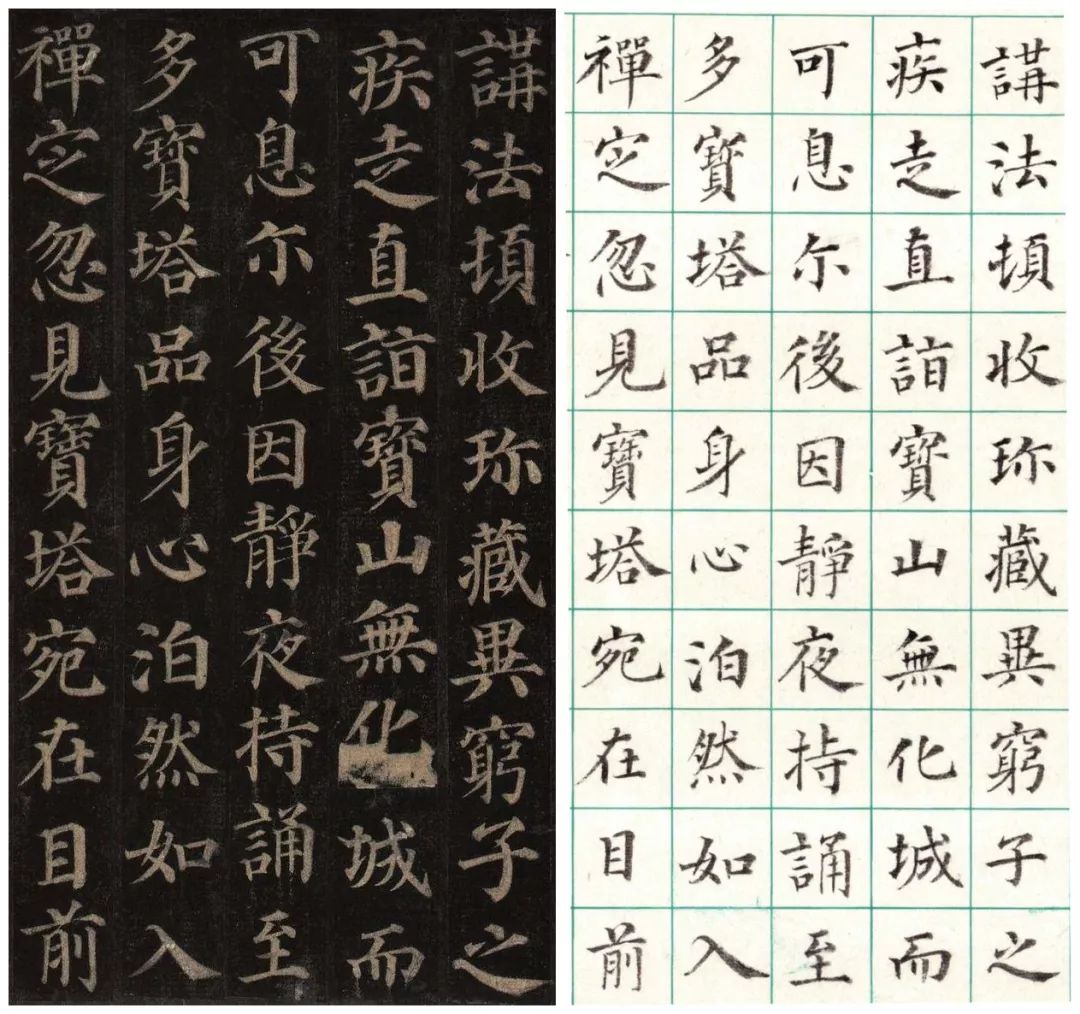 講法頓收珎藏異窮子之
疾走直詣寶山無化城而
可息尓後因靜夜持誦至
多寶塔品身心泊然如入
禪定忽見寶塔宛在目前
講法頓收珎藏異窮子之
疾走直詣寶山無化城而
可息尓後因靜夜持誦至
多寶塔品身心泊然如入
禪定忽見寶塔宛在目前